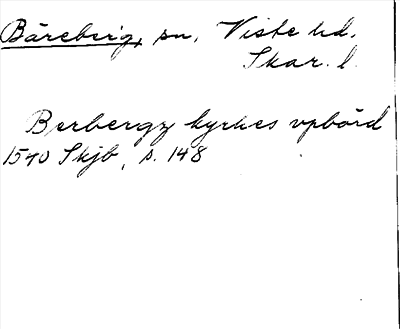 Bäreberg, sn, Viste hd.
Skar. l.
Berbergz kyrkes vpbörd
1540 Skjb, s. 148